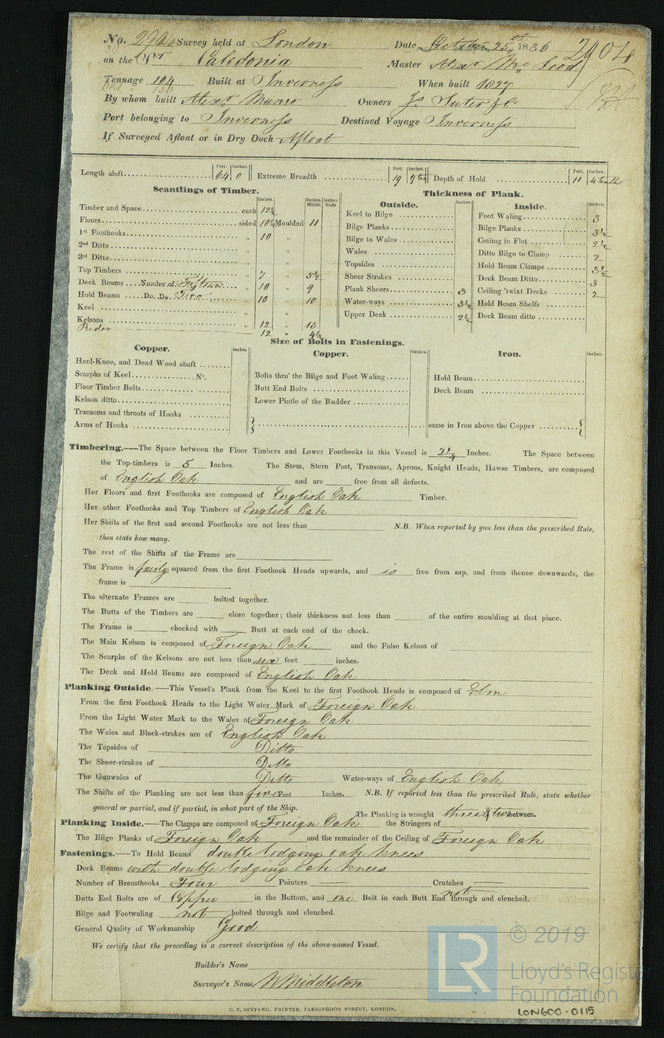 No. Survey held at London Date October 25th 1836 2904
on the Caledonia Master Alexr Mc Leod
Tonnage 104 Built at Inverness When built 1827
By whom built Alexr Munro Owners Js Suter & Co
Port belonging to Inverness Destined Voyage Inverness
If Surveyed Afloat or in Dry Dock Afloat
Feet. Inches. Feet Inches. Feet. Inches.
Length aloft 64 0 Extreme Breadth 19 Depth of Hold 11 4
Scantlings of Timber. Thickness of Plank.
Outside. Inside.
Timber and Space each 12½
Floors sided 10½ Moulded 11
1st Foothooks 10
2nd Ditto
3rd Ditto
Top Timbers 7 5½
Deck Beams Number of 10 9
Hold Beams Do. Do. 10 10
Keel
Kelsons 12 12
Rider 12 4½
Keel to Bilge
Bilge Planks
Bilge to Wales
Wales
Topsides
Sheer Strakes
Plank Sheers 3
Water-ways 3½
Upper Deck 2½
Foot Waling 3
Bilge Planks 3½
Ceiling in Flat 2½
Ditto Bilge to Clamp 2
Hold Beam Clamps 3½
Deck Beam Ditto 3
Ceiling 'twixt Decks 2
Hold Beam Shelfs
Deck Beam ditto
Size of Bolts in Fastenings.
Copper. Inches. Copper. Inches. Iron. Inches.
Heel-Knee, and Dead Wood abaft
Scarphs of Keel No.
Floor Timber Bolts
Kelson ditto
Transoms and throats of Hooks
Arms of Hooks
Bolts thro' the Bilge and Foot Waling
Butt End Bolts
Lower Pintle of the Rudder
Hold Beam
Deck Beam
same in Iron above the Copper
Timbering.—The Space between the Floor Timbers and Lower Foothooks in this Vessel is 2¼ Inches. The Space between
the Top-timbers is 5 Inches. The Stem, Stern Post, Transoms, Aprons, Knight Heads, Hawse Timbers, are composed
of English Oak and are free from all defects.
Her Floors and first Foothooks are composed of English Oak Timber.
Her other Foothooks and Top Timbers of English Oak
Her Shifts of the first and second Foothooks are not less than N.B. When reported by you less than the prescribed Rule,
then state how many.
The rest of the Shifts of the Frame are
The Frame is fairly squared from the first Foothook Heads upwards, and is free from sap, and from thence downwards, the
frame is
The alternate Frames are bolted together.
The Butts of the Timbers are close together; their thickness not less than of the entire moulding at that place.
The Frame is chocked with Butt at each end of the chock.
The Main Kelson is composed of Foreign Oak and the False Kelson of
The Scarphs of the Kelsons are not less than six feet inches.
The Deck and Hold Beams are composed of English Oak
Planking Outside.—This Vessel's Plank from the Keel to the first Foothook Heads is composed of Elm
From the first Foothook Heads to the Light Water Mark of Foreign Oak
From the Light Water Mark to the Wales of Foreign Oak
The Wales and Black-strakes are of English Oak
The Topsides of Ditto
The Sheer-strakes of Ditto
The Gunwales of Ditto Water-ways of English Oak
The Shifts of the Planking are not less than five Feet Inches. N.B. If reported less than the prescribed Rule, state whether
general or partial, and if partial, in what part of the Ship. The Planking is wrought three & two between.
Planking Inside.—The Clamps are composed of Foreign Oak the Stringers of
The Bilge Planks of Foreign Oak and the remainder of the Ceiling of Foreign Oak
Fastenings.—To Hold Beams double lodging oak knees
Deck Beams with double lodging oak knees
Number of Breasthooks Four Pointers Crutches
Butts End Bolts are of Copper in the Bottom, and one Bolt in each Butt End not through and clenched.
Bilge and Footwaling not bolted through and clenched.
General Quality of Workmanship Good
We certify that the preceding is a correct description of the above-named Vessel.
Builder's Name
Surveyor's Name W Middleton
C. F. SEYFANG, PRINTER, FARRINGDON STREET, LONDON.
LR © 2019
Lloyd's Register
Foundation
LON600-0115